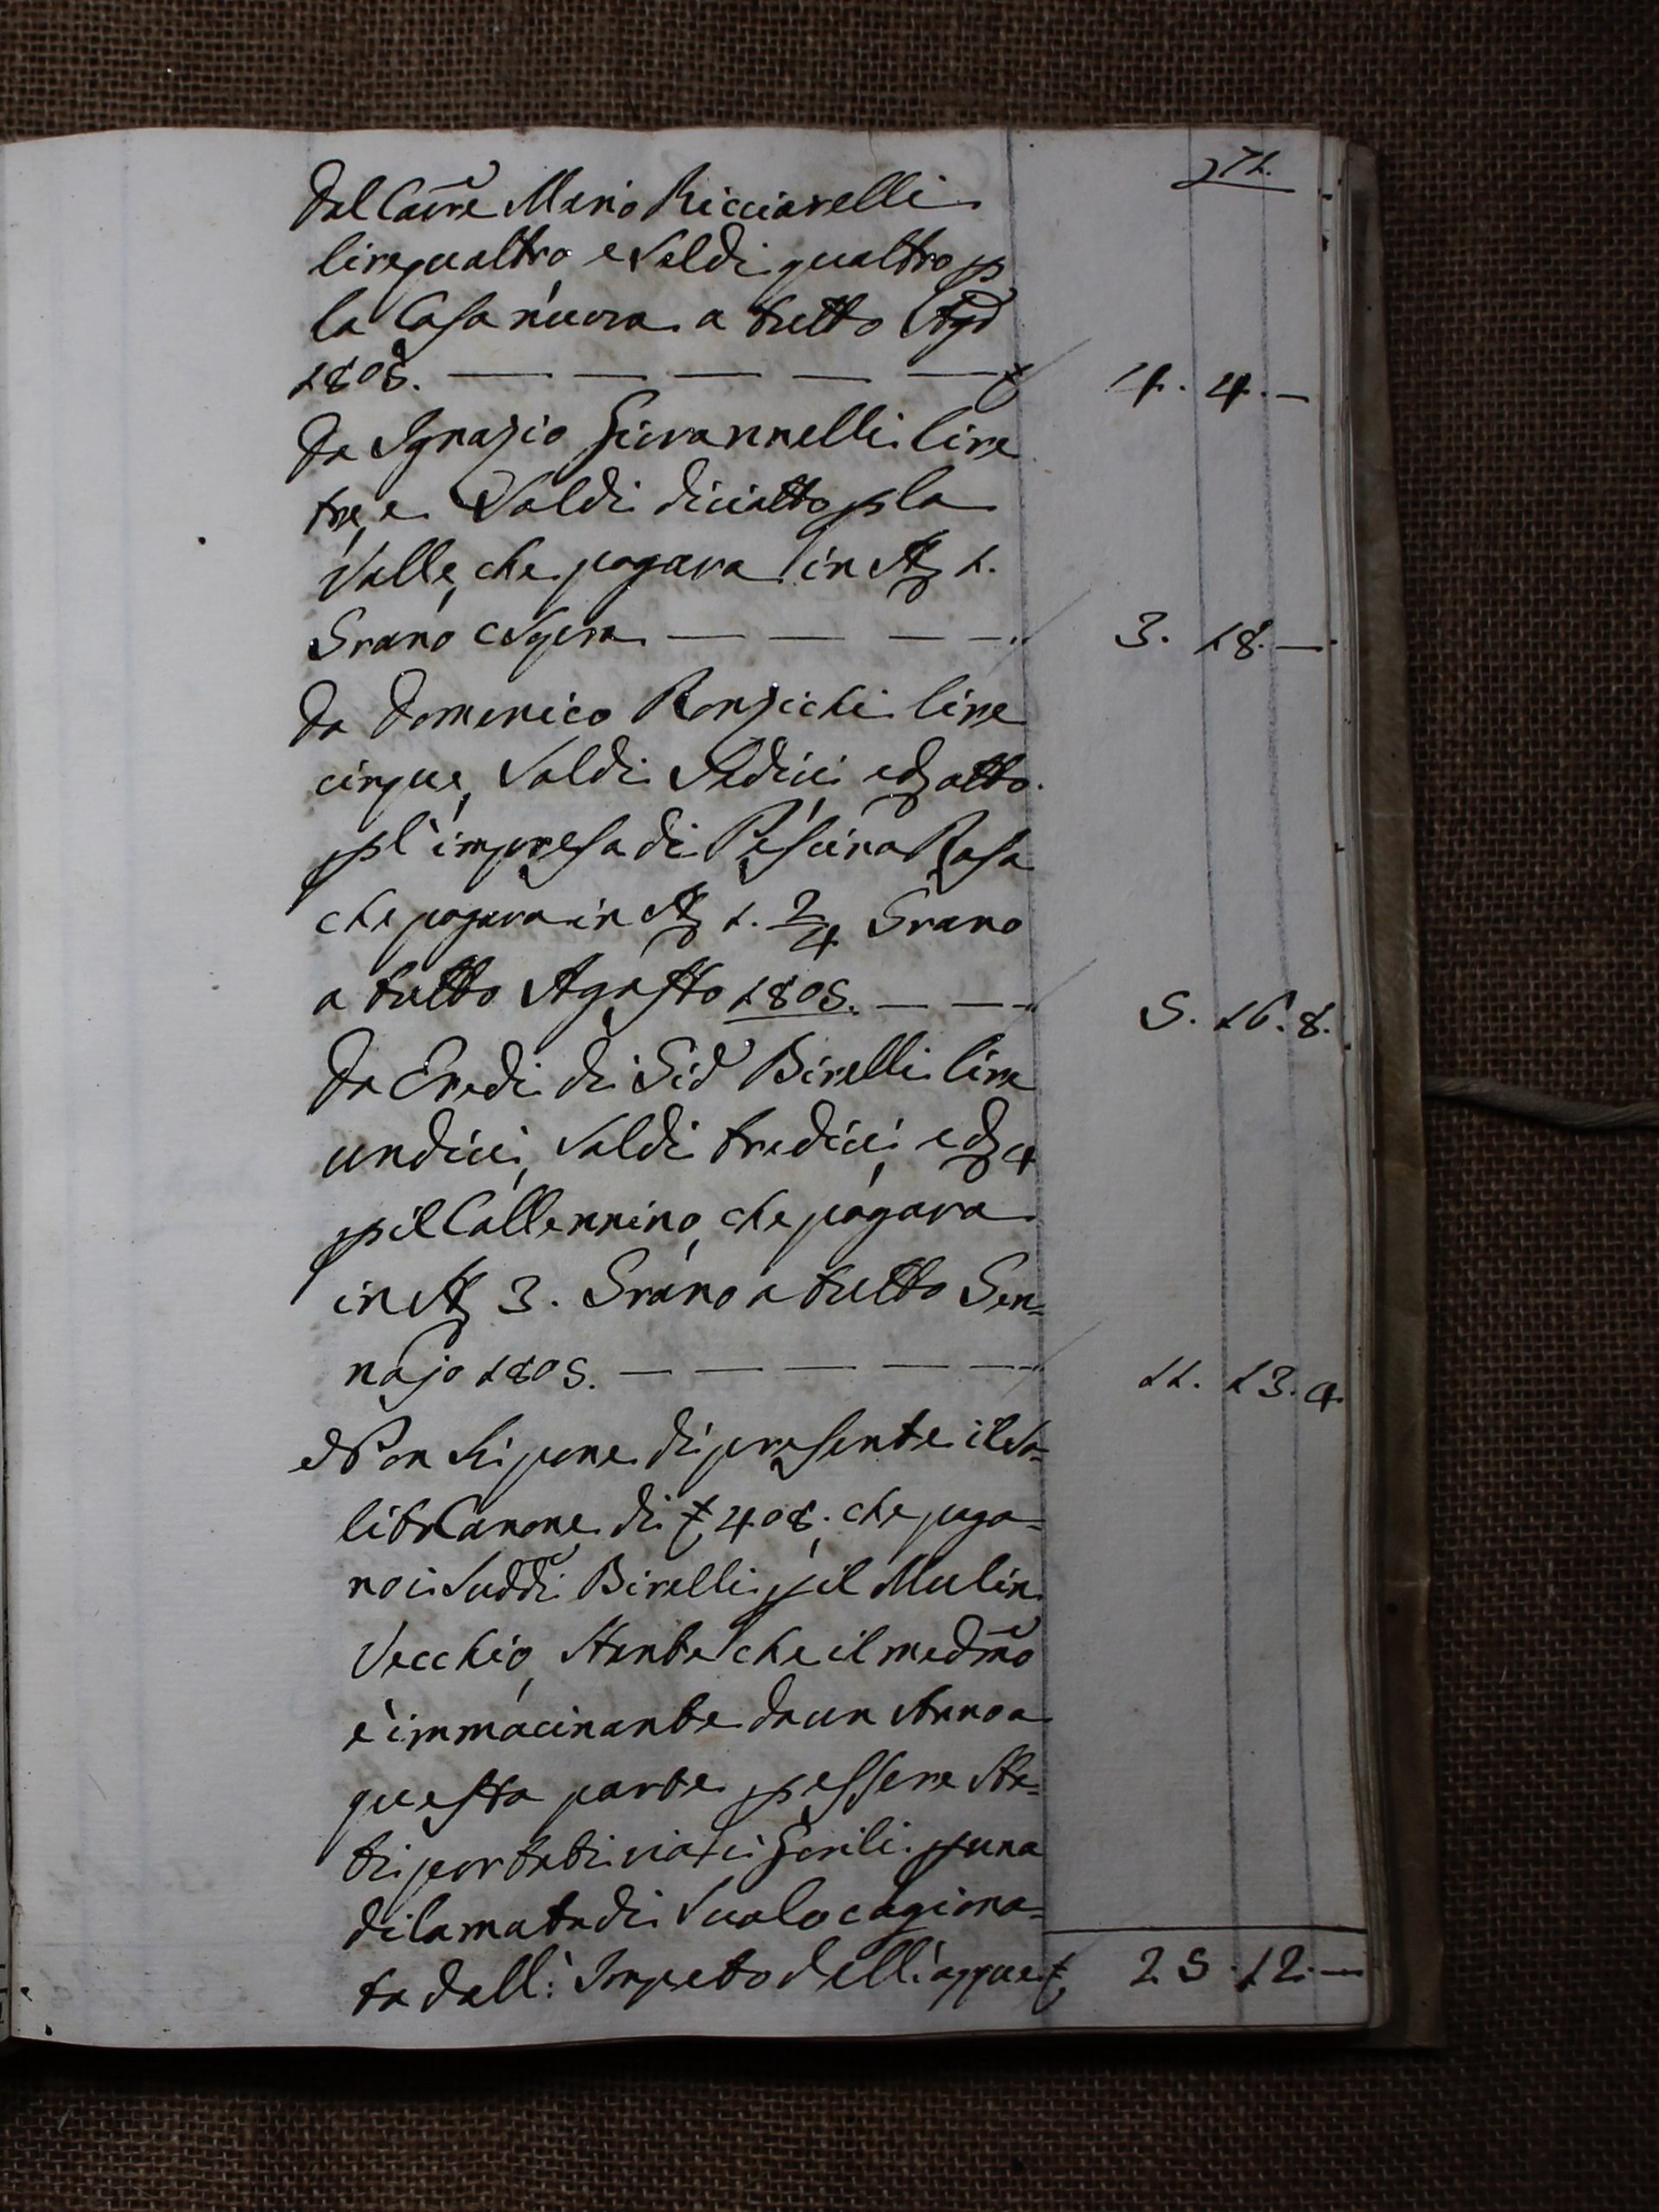 271.
Dal Cav.re Mario Ricciarelli
lire quattro, e Soldi quattro p
la Casa nuova a tutto Ag.o
1805. — — — — — £ 4. 4. —
Da Ignazio Giovannelli lire
tre, e Soldi diciotto p la
Valle, che pagava in S.a 1.
Grano — — — — 3. 18. —
Da Domenico Ronzichi lire
cinque, Soldi Sedici e d. otto
p l'impresa di Piscina Rosa
che pagava in S.a 1. 2/4 Grano
a tutto Agosto 1805. — — 5. 16. 8.
Da Eredi di Gio Birelli lire
undici, Soldi tredici, e d. 4
p il Collennino, che pagava
in S.a 3. Grano a tutto Gen=
najo 1805. — — — — — 11. 13. 4.
Non si pone di presente il So=
lito Canone di £ 408. che paga=
no i Sudd.i Birelli p il Mulin
Vecchio, Stante che il med.mo
è immacinante da un Anno a
questa parte p essere Sta=
ti portati via i Gorili p una
dilamata di Suolo cagiona=
ta dall: Impeto dell: acque £ 25. 12. —